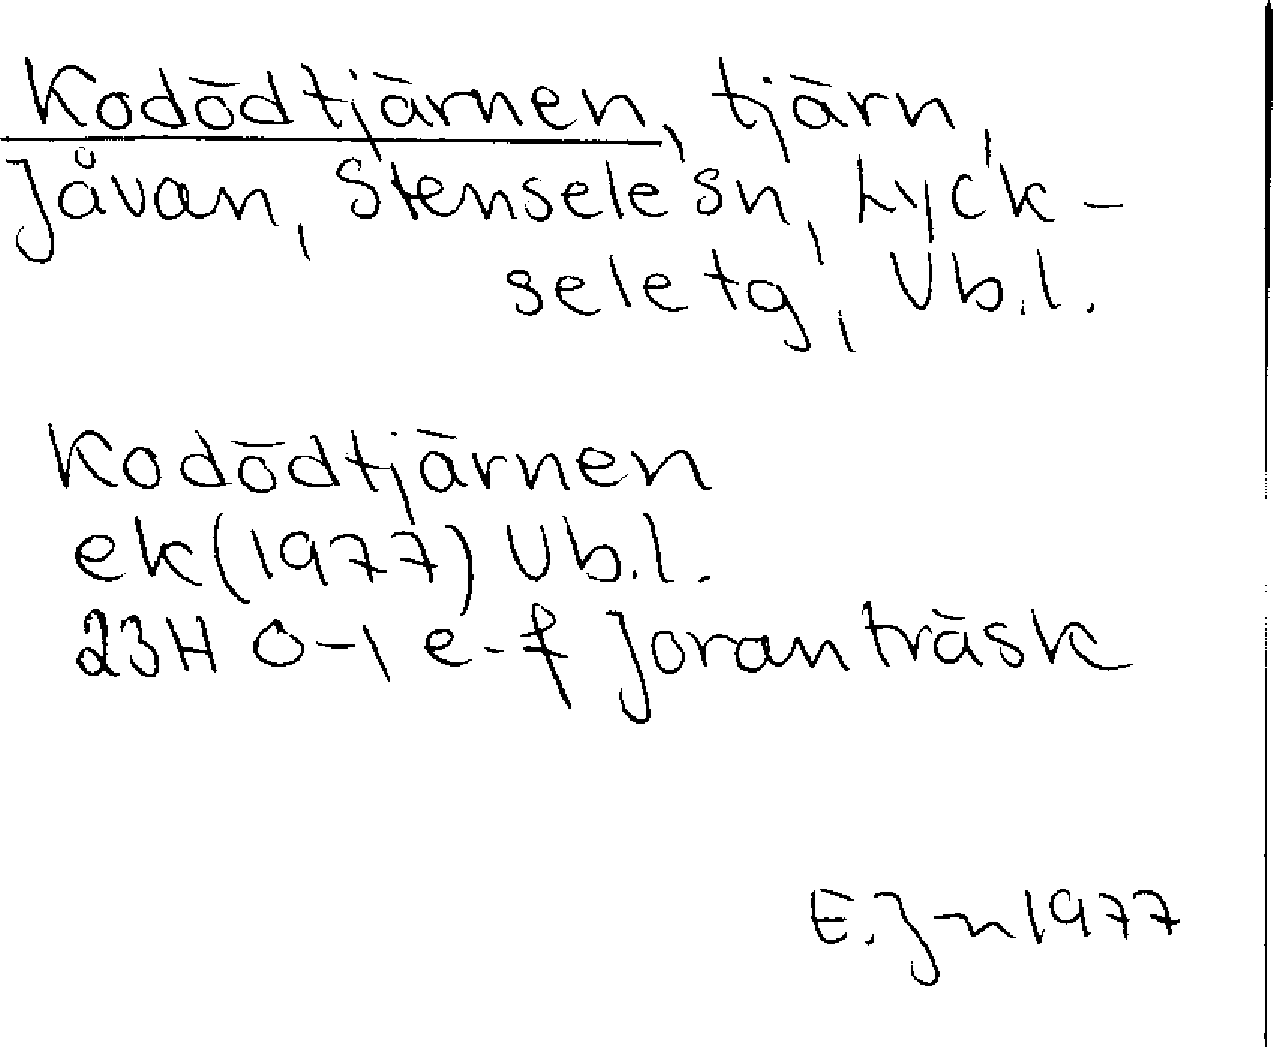 Kodödtjärnen, tjärn,
Jåvan, Stensele sn, Lyck-
sele tg, Vb.l.
Kodödtjärnen
ek (1977) Vb.l.
23H 0-1 e-f Joranträsk
E. J-n 1977